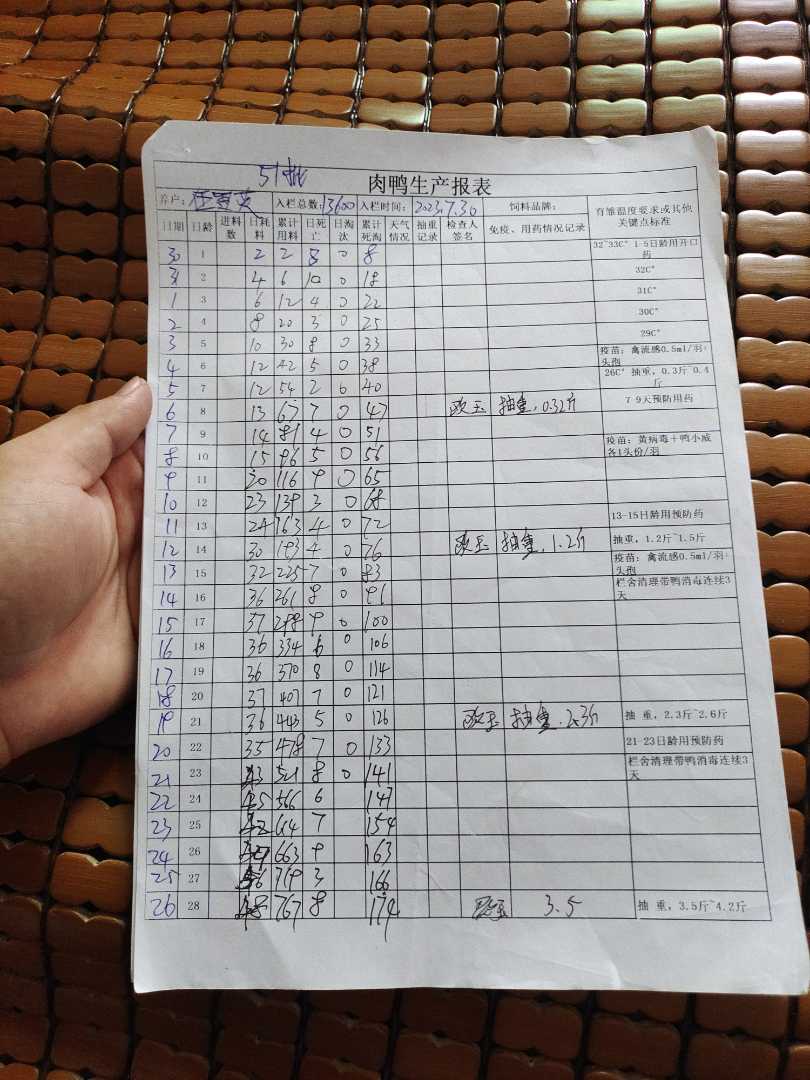 51批
肉鸭生产报表
养户: 入栏总数:13600 入栏时间:2023.7.30 饲料品牌: 育雏温度要求或其他关键点标准
日期 日龄 进料数 日耗料 累计用料 日死亡 日淘汰 累计死淘 天气情况 抽重记录 检查人签名 免疫、用药情况记录
30 1 2 2 8 0 8 32~33C° 1-5日龄用开口药
2 4 6 10 0 18 32C°
1 3 6 12 4 0 22 31C°
2 4 8 20 3 0 25 30C°
3 5 10 30 8 0 33 29C°
4 6 12 42 5 0 38 疫苗: 禽流感0.5ml/羽+头孢
5 7 12 54 2 0 40 26C° 抽重, 0.3斤~0.4斤
6 8 13 67 7 0 47 欧玉 抽重, 0.32斤 7-9天预防用药
7 9 14 81 4 0 51
8 10 15 96 5 0 56 疫苗: 黄病毒+鸭小威各1头份/羽
9 11 20 116 9 0 65
10 12 23 139 3 0 68
11 13 24 163 4 0 72 13-15日龄用预防药
12 14 30 193 4 0 76 欧玉 抽重, 1.2斤 抽重, 1.2斤~1.5斤
13 15 32 225 7 0 83 疫苗: 禽流感0.5ml/羽+头孢
14 16 36 261 8 0 91 栏舍清理带鸭消毒连续3天
15 17 37 298 9 0 100
16 18 36 334 6 0 106
17 19 36 370 8 0 114
18 20 37 407 7 0 121
19 21 36 443 5 0 126 欧玉 抽重, 2.3斤 抽 重, 2.3斤~2.6斤
20 22 35 478 7 0 133 21-23日龄用预防药
21 23 43 521 8 0 141 栏舍清理带鸭消毒连续3天
22 24 45 566 6 147
23 25 614 7 154
24 26 663 9 163
25 27 719 3 166
26 28 48 767 8 174 欧玉 3.5 抽 重, 3.5斤~4.2斤